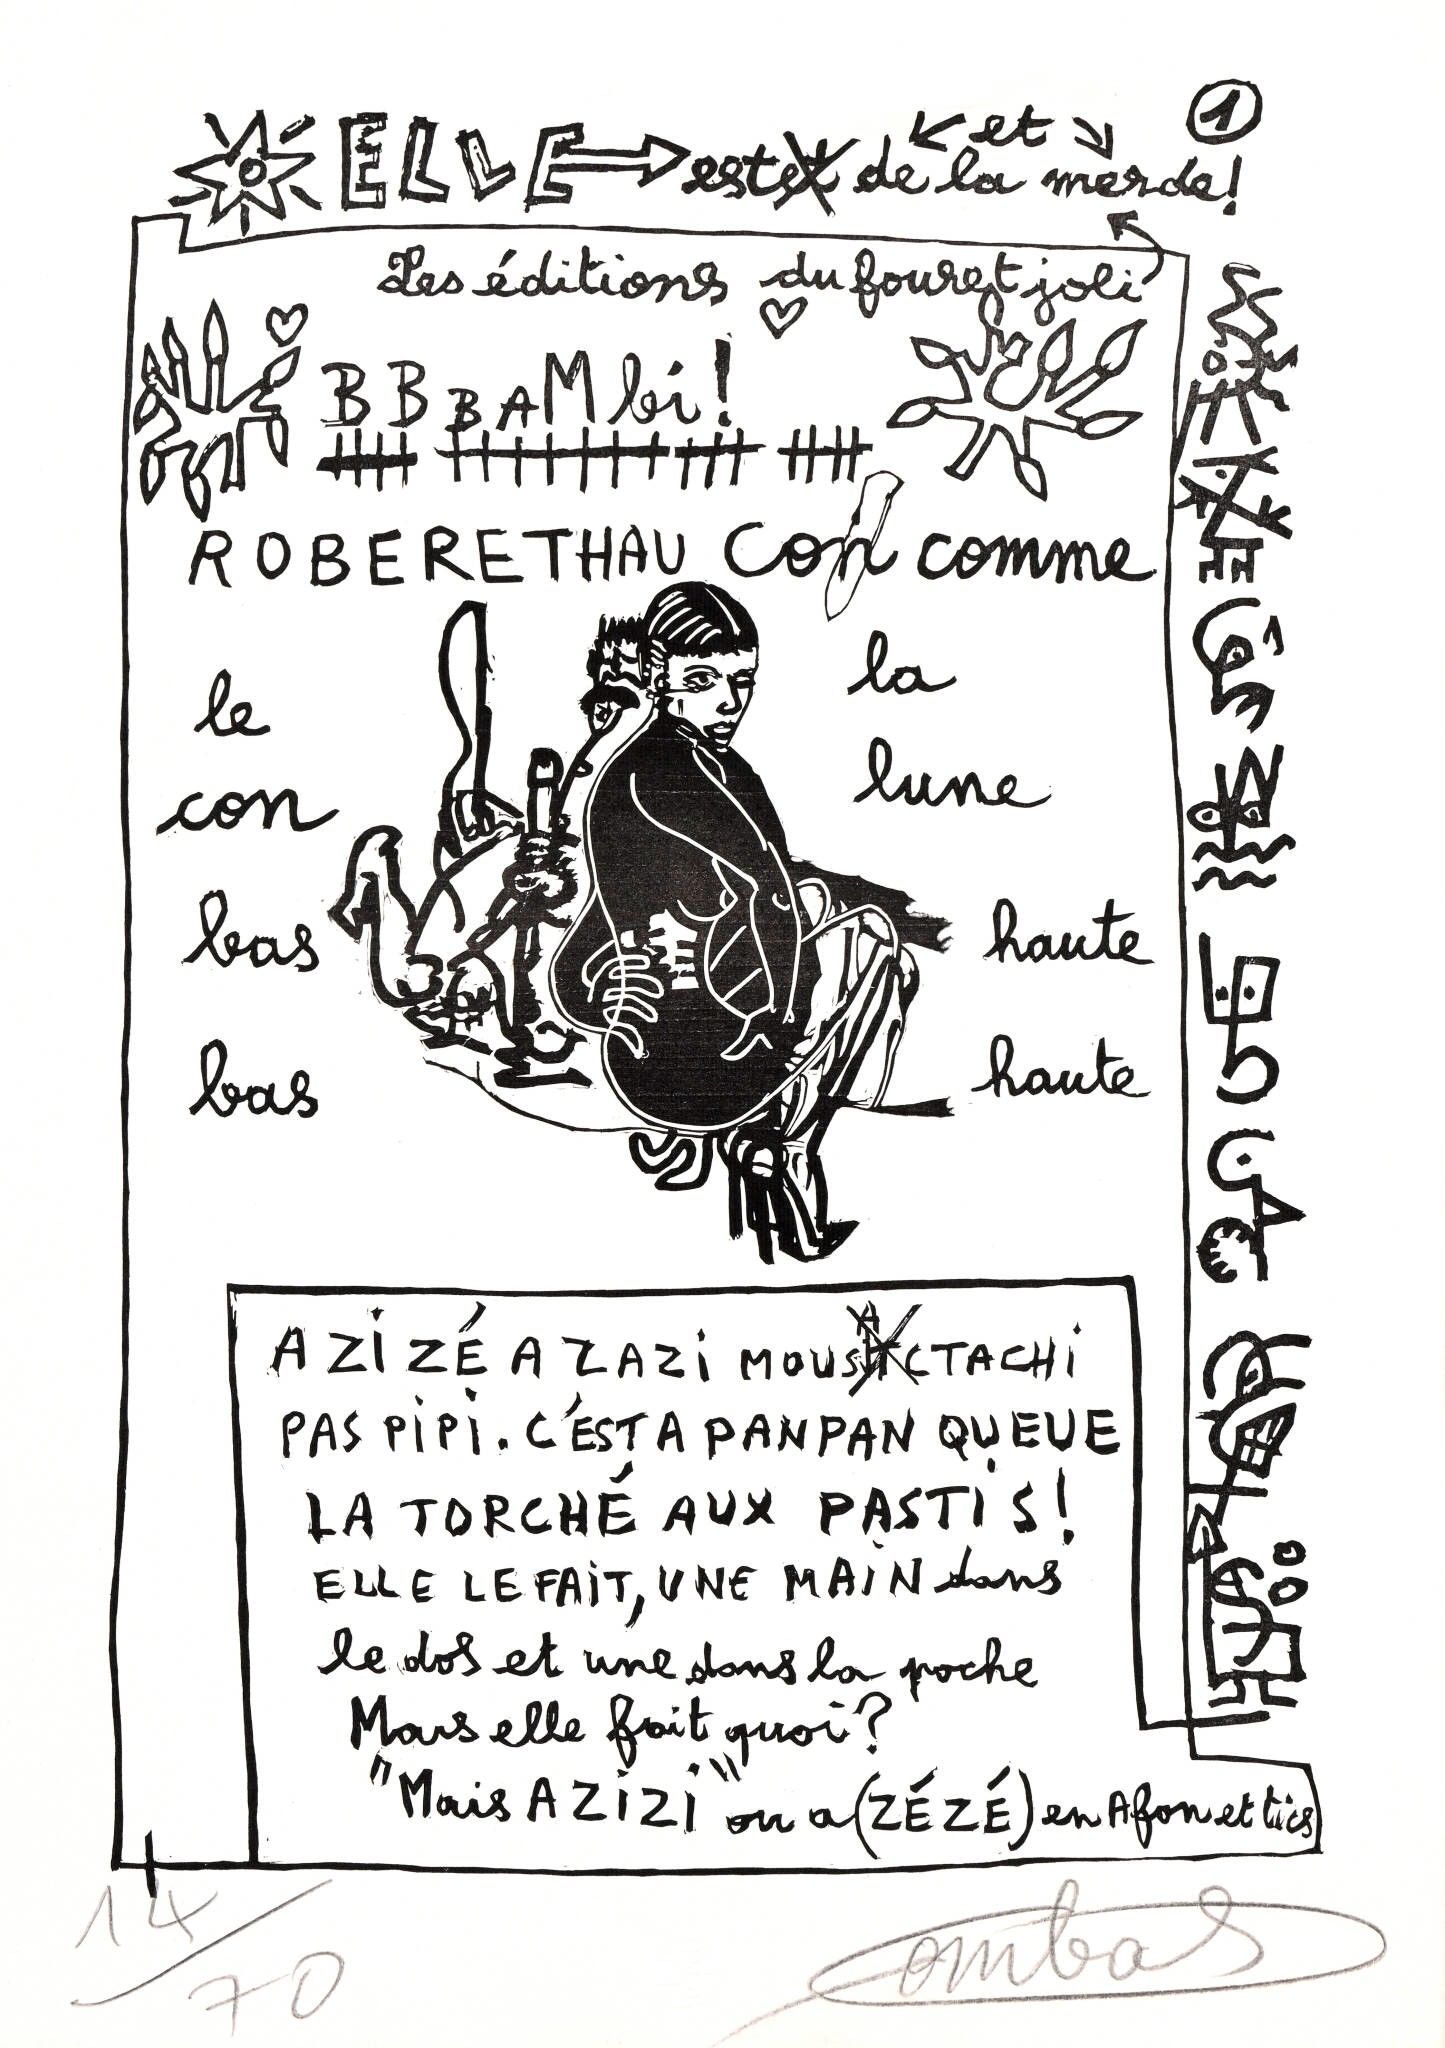 1
et
ELLE est de la merde!
Les éditions du fouret joli
BBBAMbi!
ROBERETHAU Con comme
le la
con lune
bas haute
bas haute
AZIZÉ AZAZI MOUSACTACHI
PAS PIPI. C'EST A PANPAN QUEUE
LA TORCHÉ AUX PASTIS!
ELLE LE FAIT, UNE MAIN dans
le dos et une dans la poche
Mais elle fait quoi?
"Mais AZIZI" ou a (ZÉZÉ) en Afon et tics
14/70
Combas